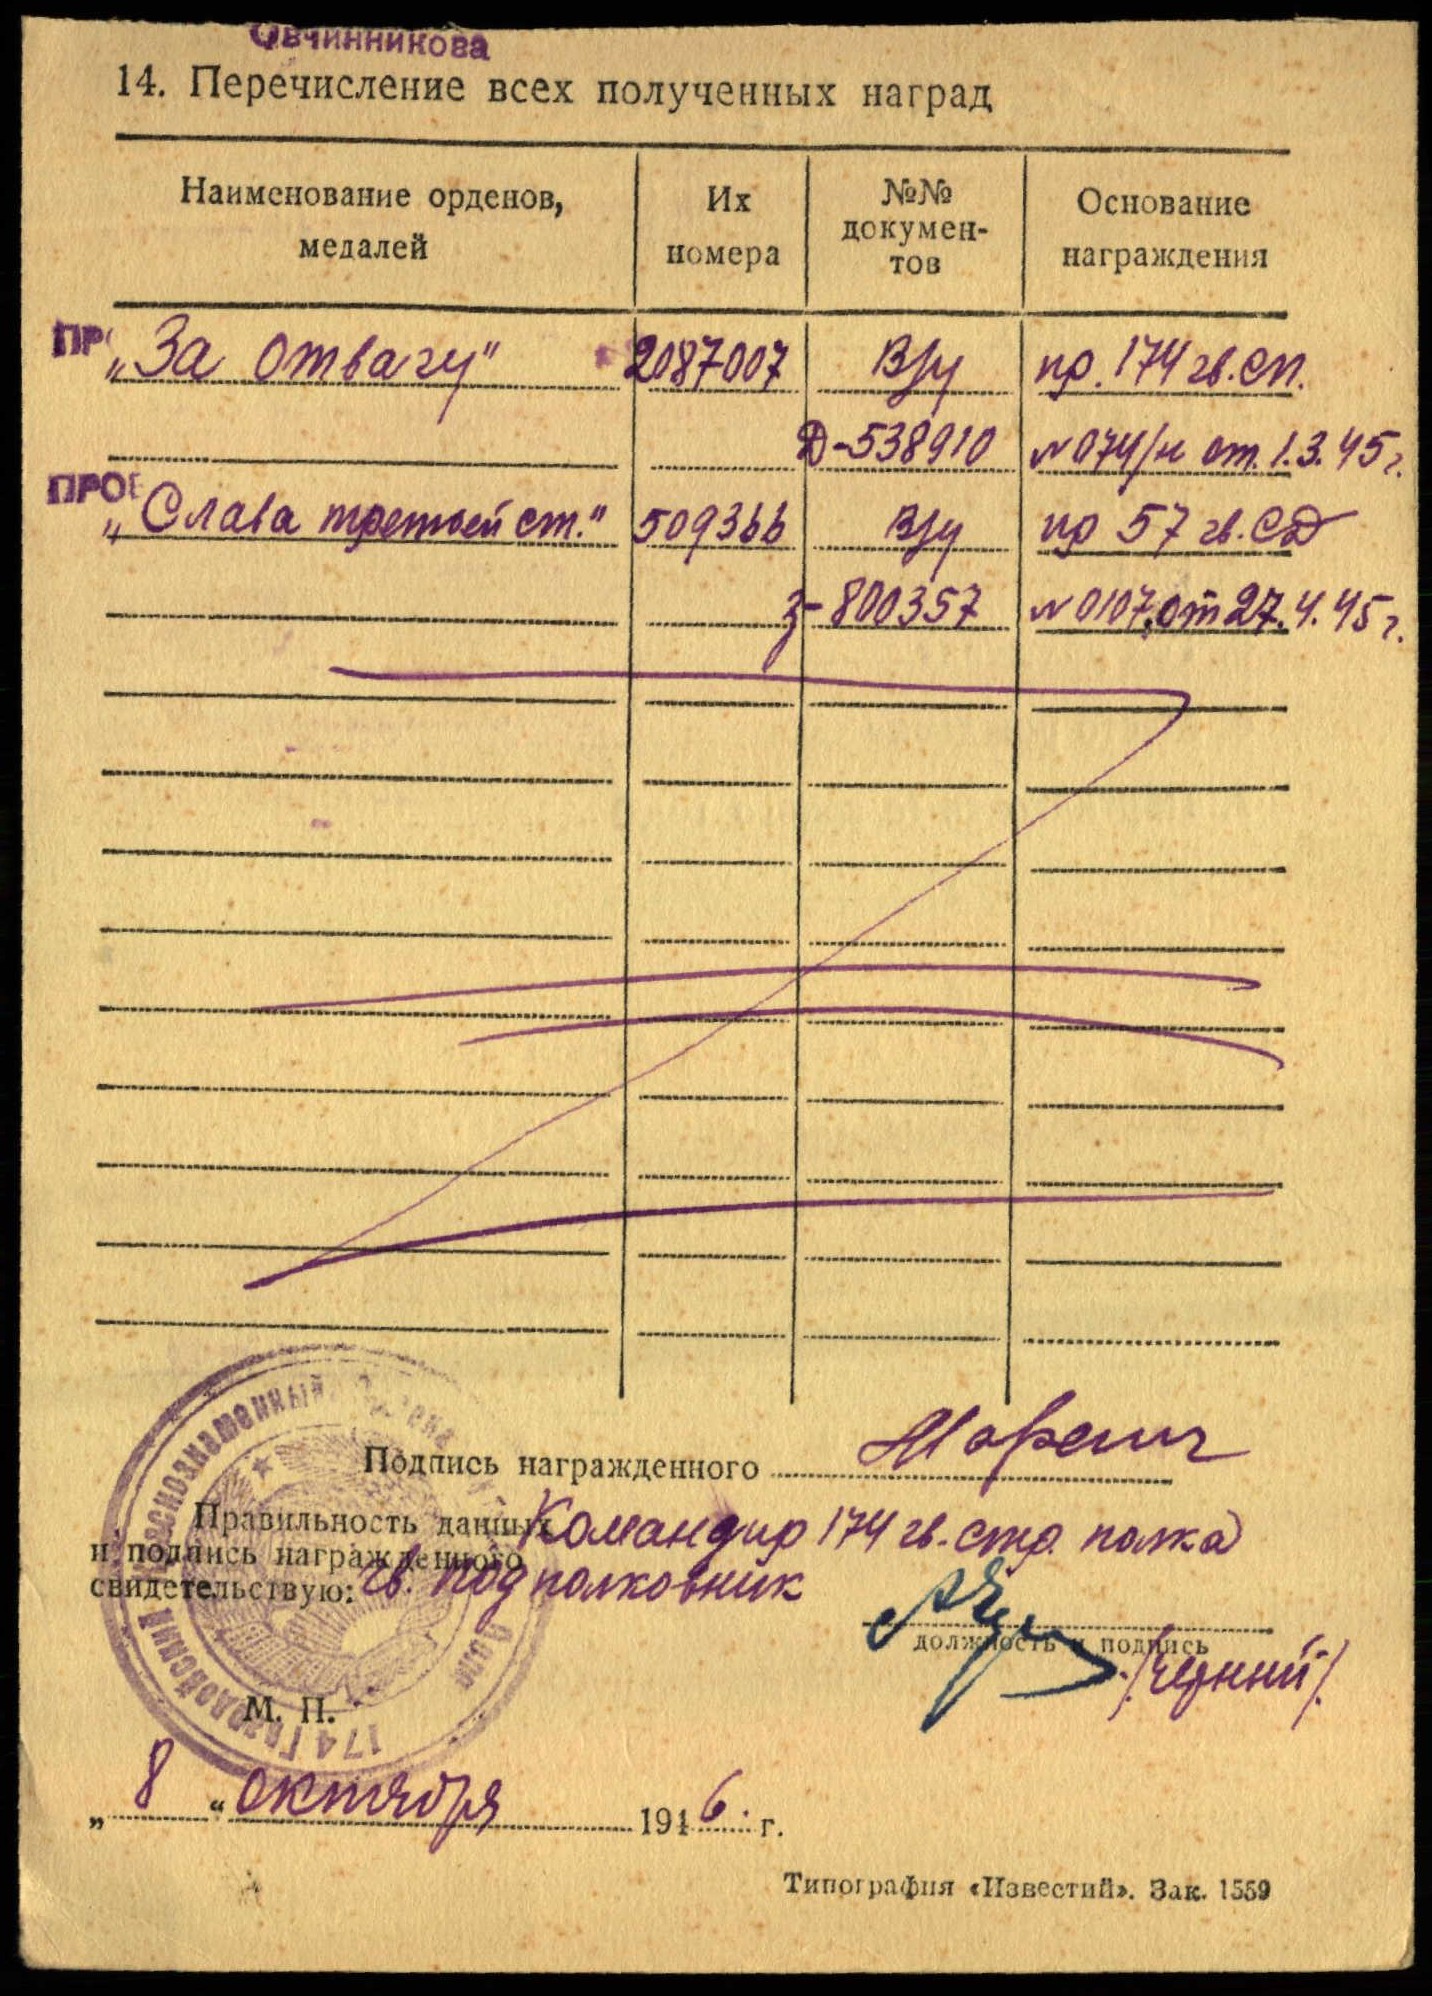 Овчинникова
14. Перечисление всех полученных наград
Наименование орденов, медалей
Их номера
№№ докумен-тов
Основание награждения
ПР
„За отвагу" 2087007 В/у пр. 174 гв. сп.
Д-538910 №074/н от. 1.3.45 г.
ПРОВ
„Слава третьей ст." 509366 В/у пр 57 гв. СД
З-800357 №0107. от 27.4.45 г.
Подпись награжденного
Правильность данных Командир 174 гв. стр. полка
и подпись награжденного
свидетельствую: гв. подполковник
должность и подпись
/Черный/.
М. П.
„ 8 “ октября 1946. г.
Типография «Известий». Зак. 1559